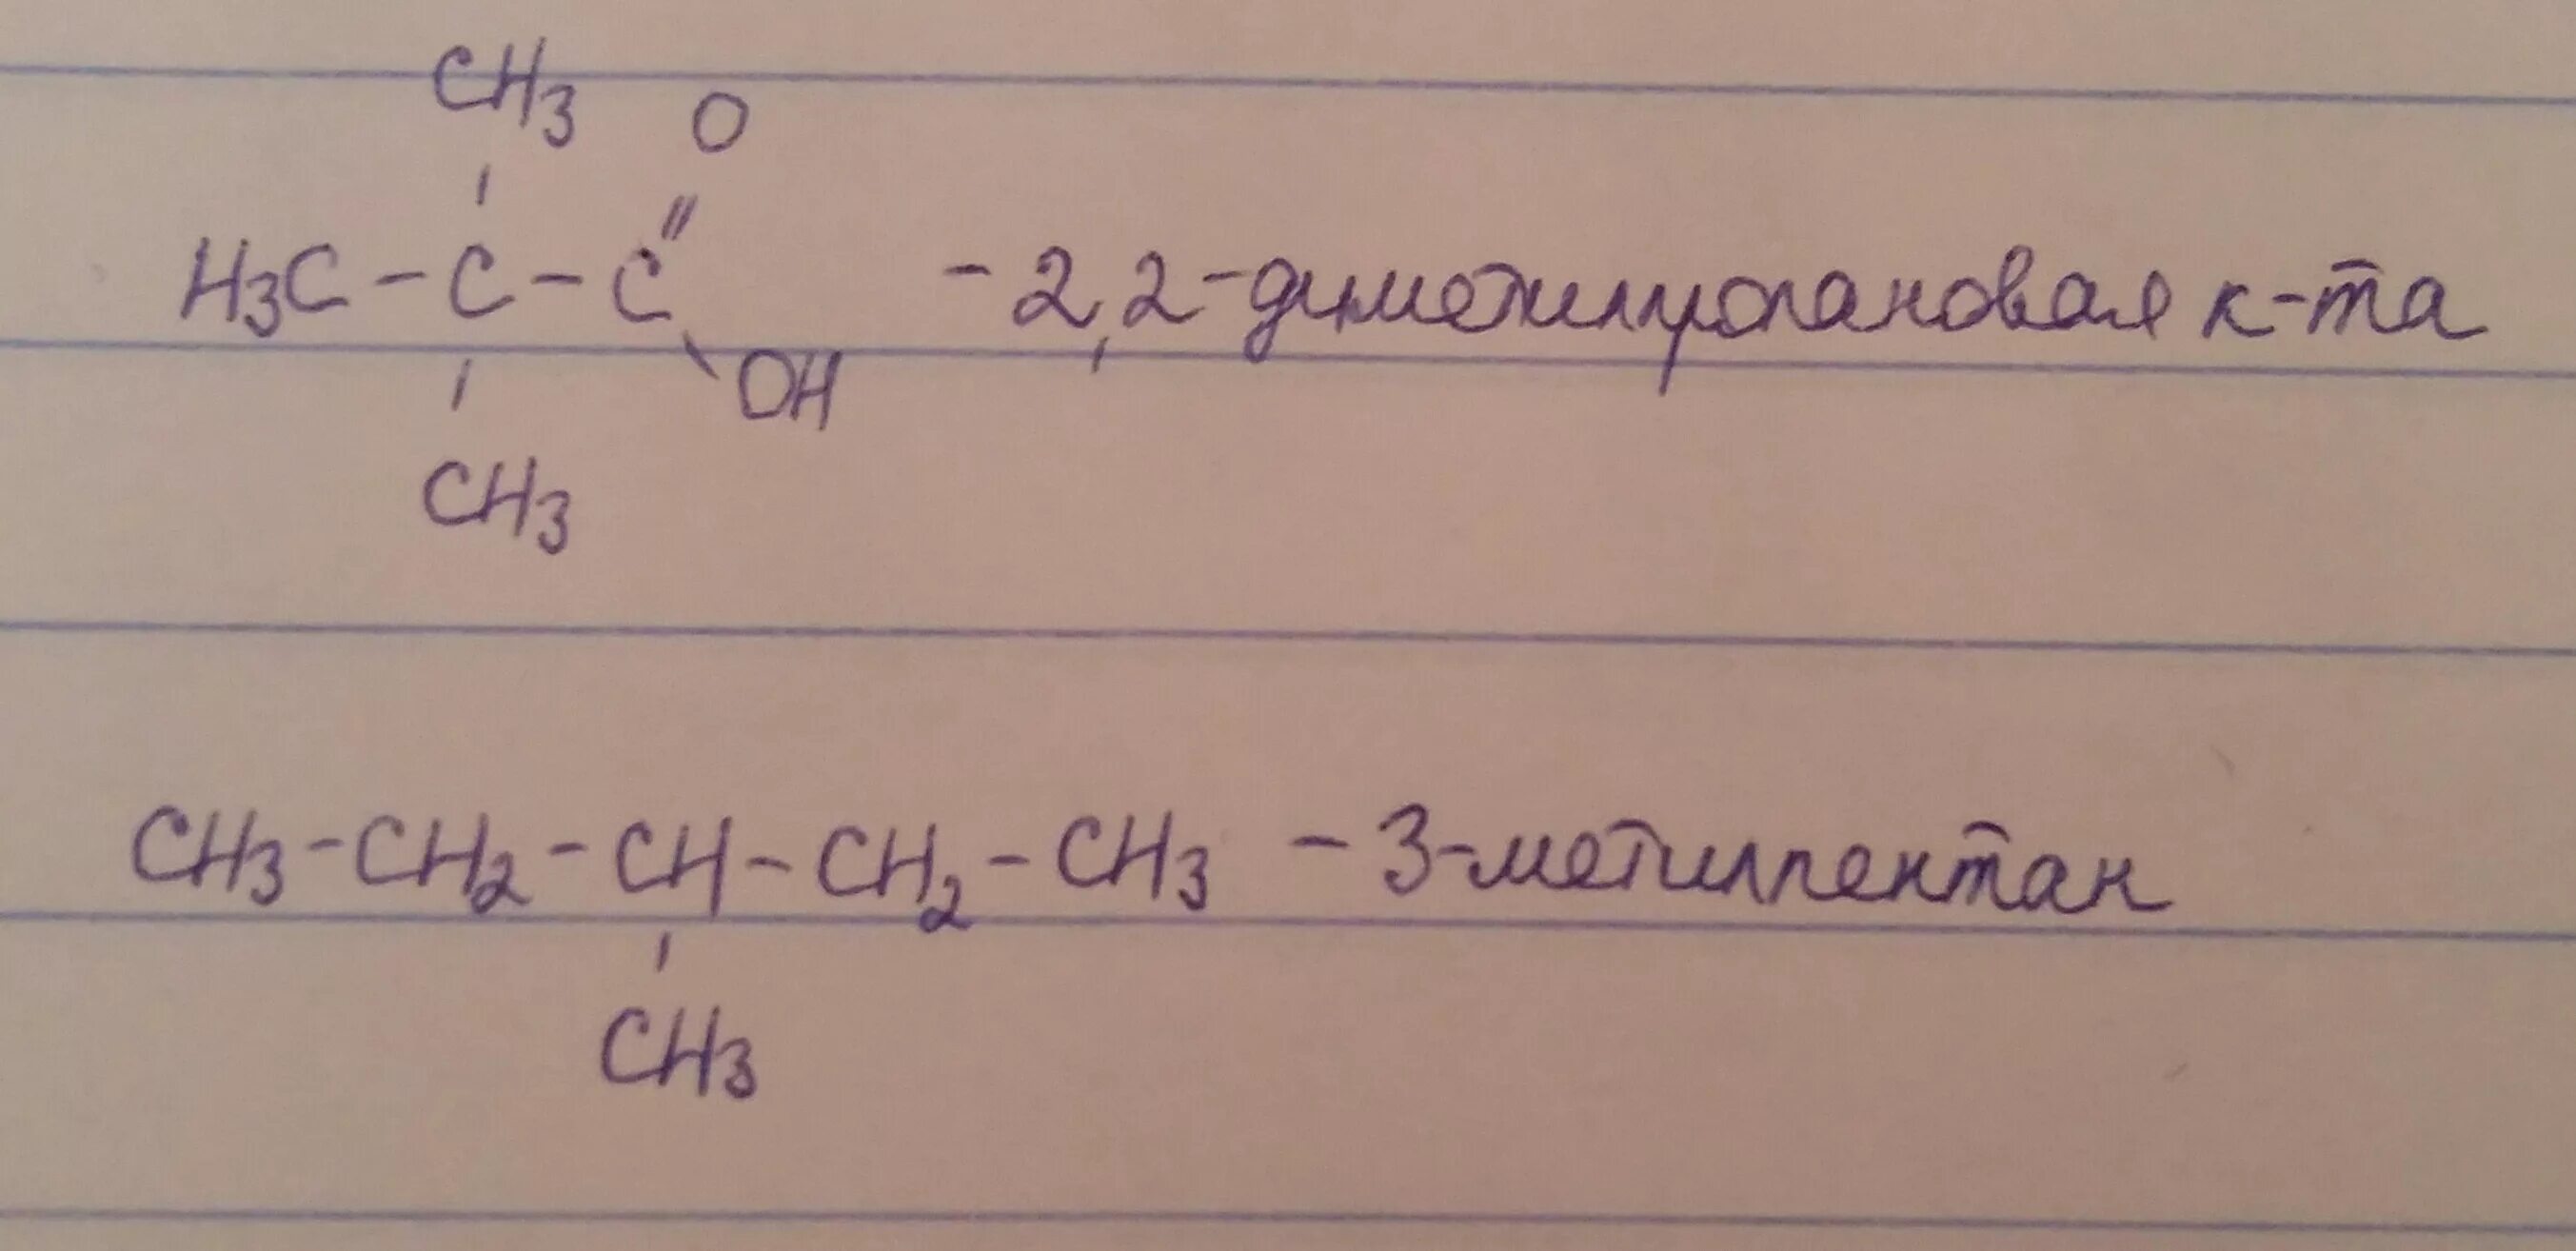 CH3 O
H3C - C - C - 2,2-диметилпропановая к-та
OH
CH3
CH3 - CH2 - CH - CH2 - CH3 - 3-метилпентан
CH3